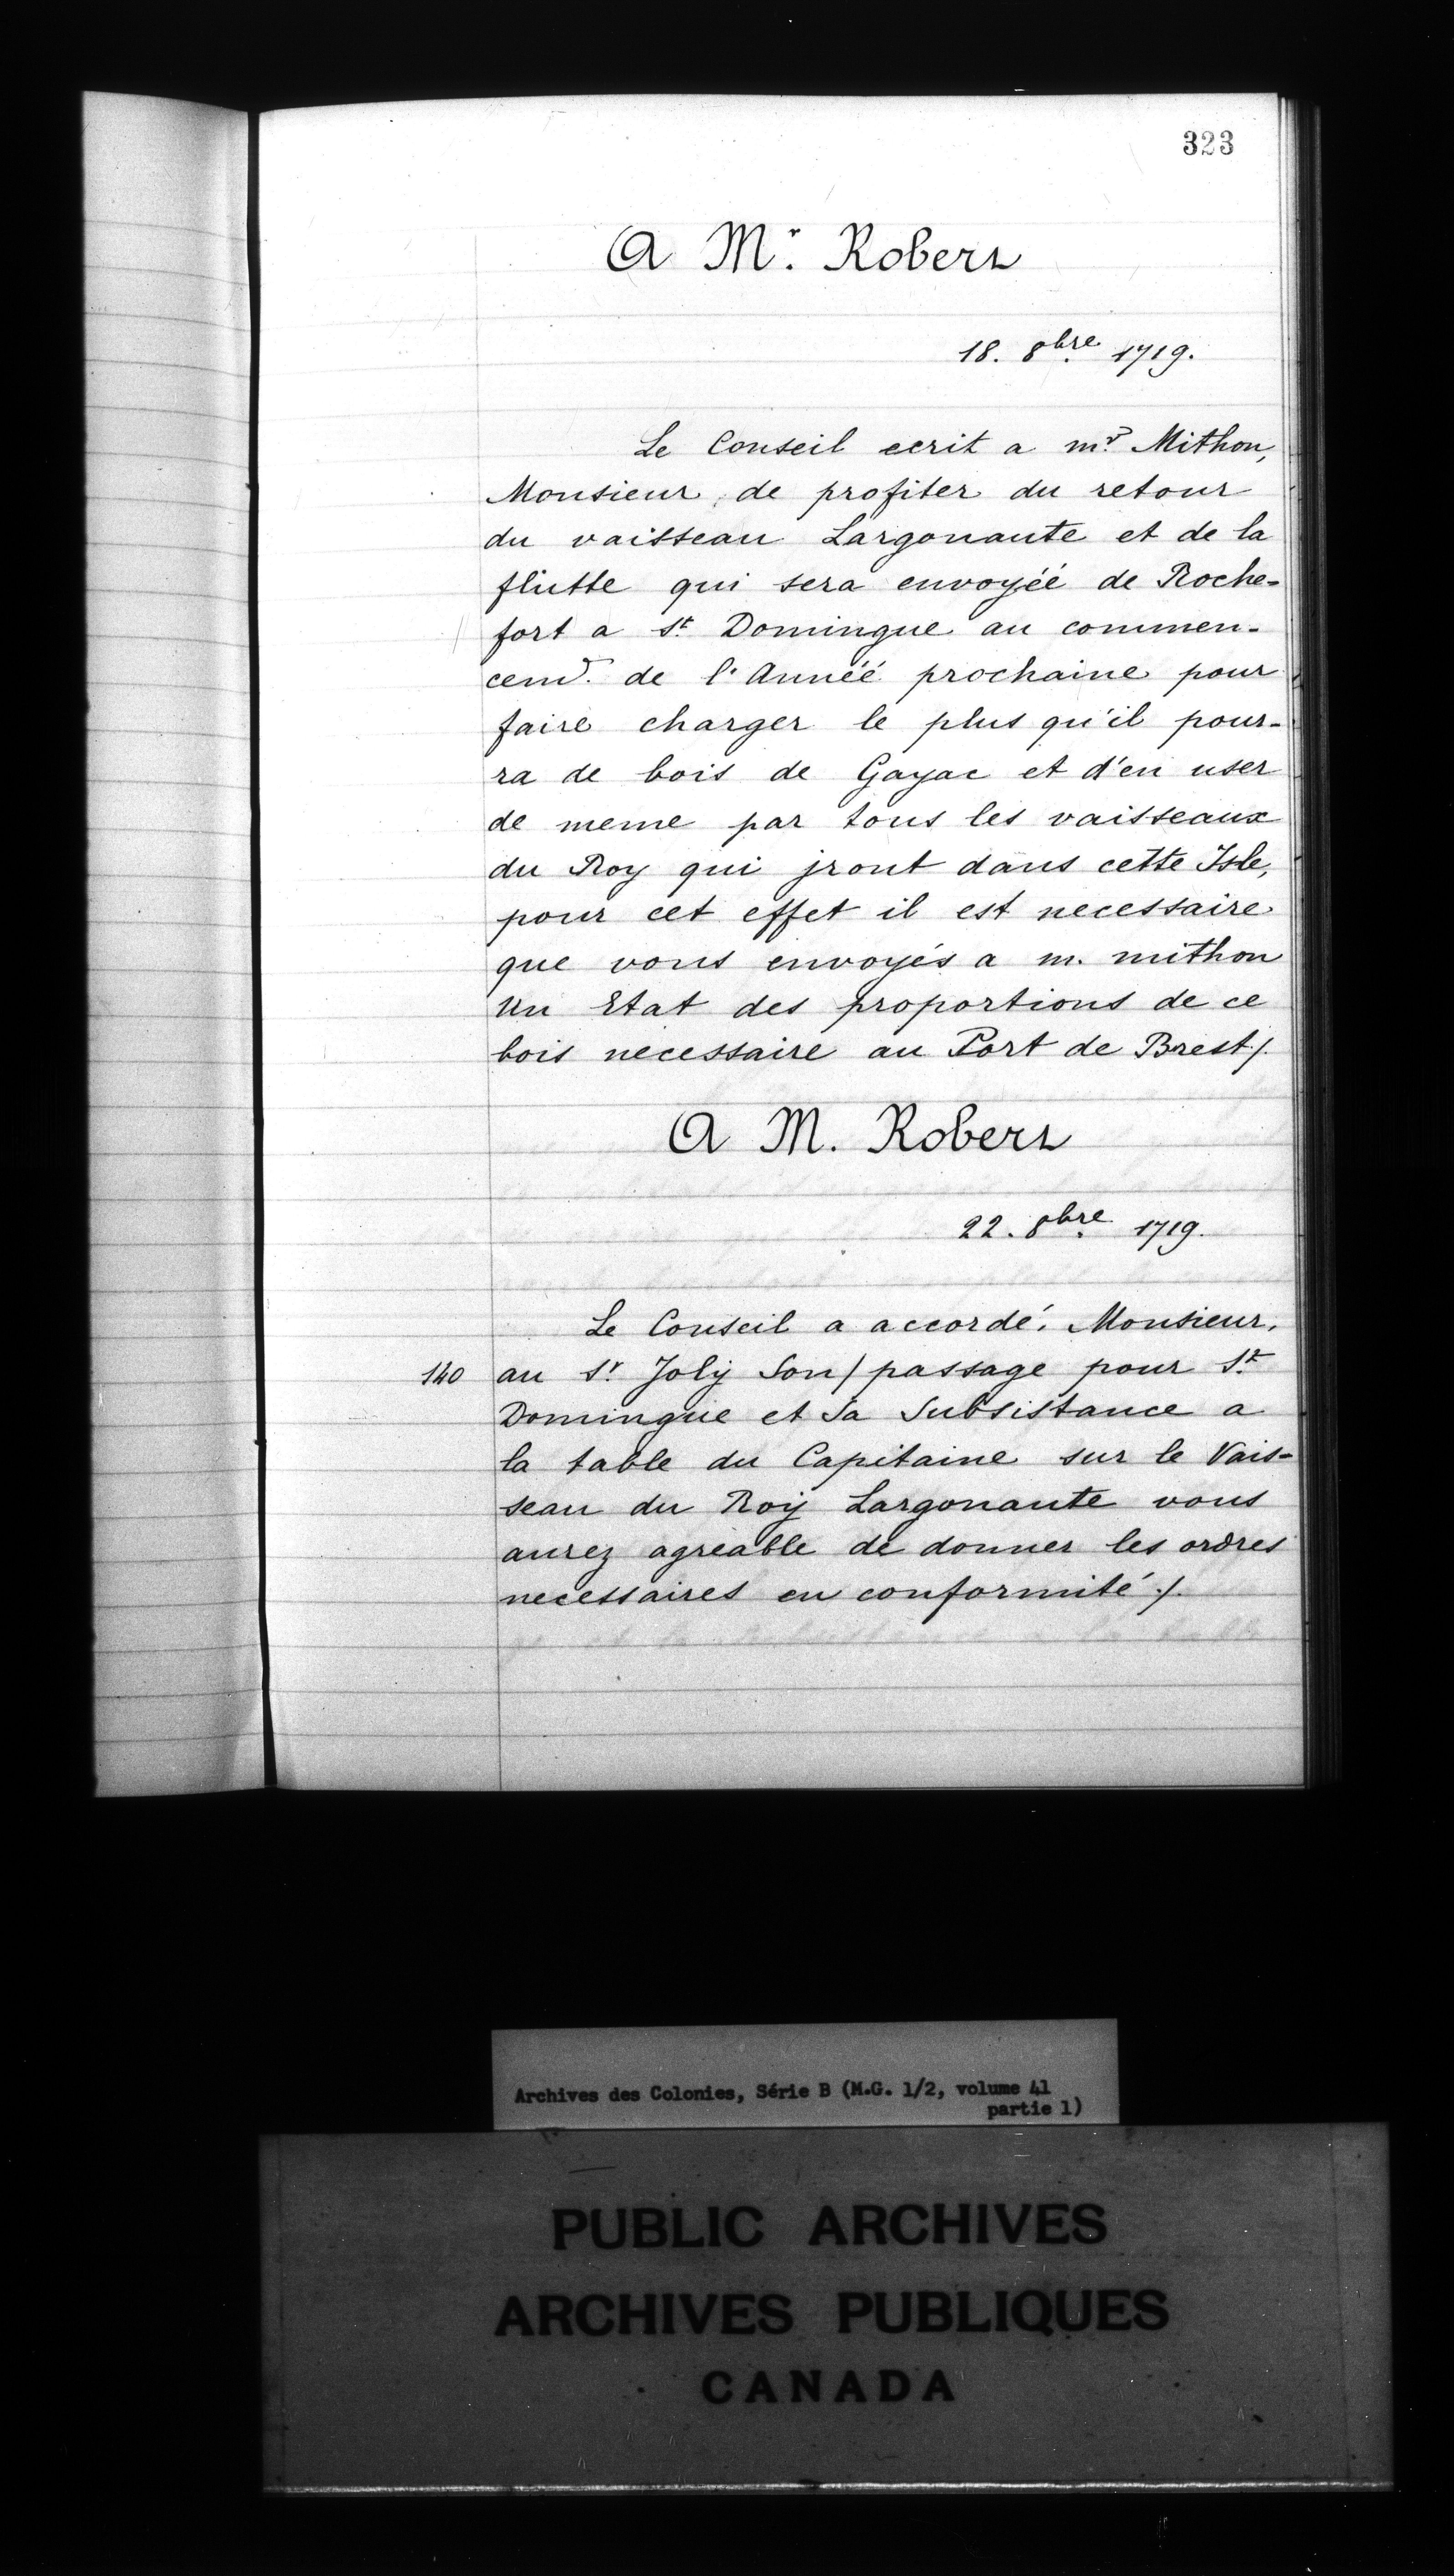 323
A Mr. Robert
18. 8bre 1719.
Le Conseil ecrit a mr. Mithon,
Monsieur, de profiter du retour
du vaisseau Largonaute et de la
flutte qui sera envoyéé de Roche-
fort a St. Domingue au commen-
cemt. de l'Annéé prochaine pour
faire charger le plus qu'il pour-
ra de bois de Gayac et d'en user
de meme par tous les vaisseaux
du Roy qui jront dans cette Isle,
pour cet effet il est necessaire
que vous envoyés a m. mithon
Un Etat des proportions de ce
bois necessaire au Port de Brest ./.
A M. Robert
22. 8bre. 1719.
Le Conseil a accordé, Monsieur,
140 au Sr. Joly Son / passage pour St.
Domingue et Sa Subsistance a
la table du Capitaine sur le Vais-
seau du Roy Largonaute vous
aurez agreable de donner les ordres
necessaires en conformité ./.
Archives des Colonies, Série B (M.G. 1/2, volume 41
partie 1)
PUBLIC ARCHIVES
ARCHIVES PUBLIQUES
CANADA